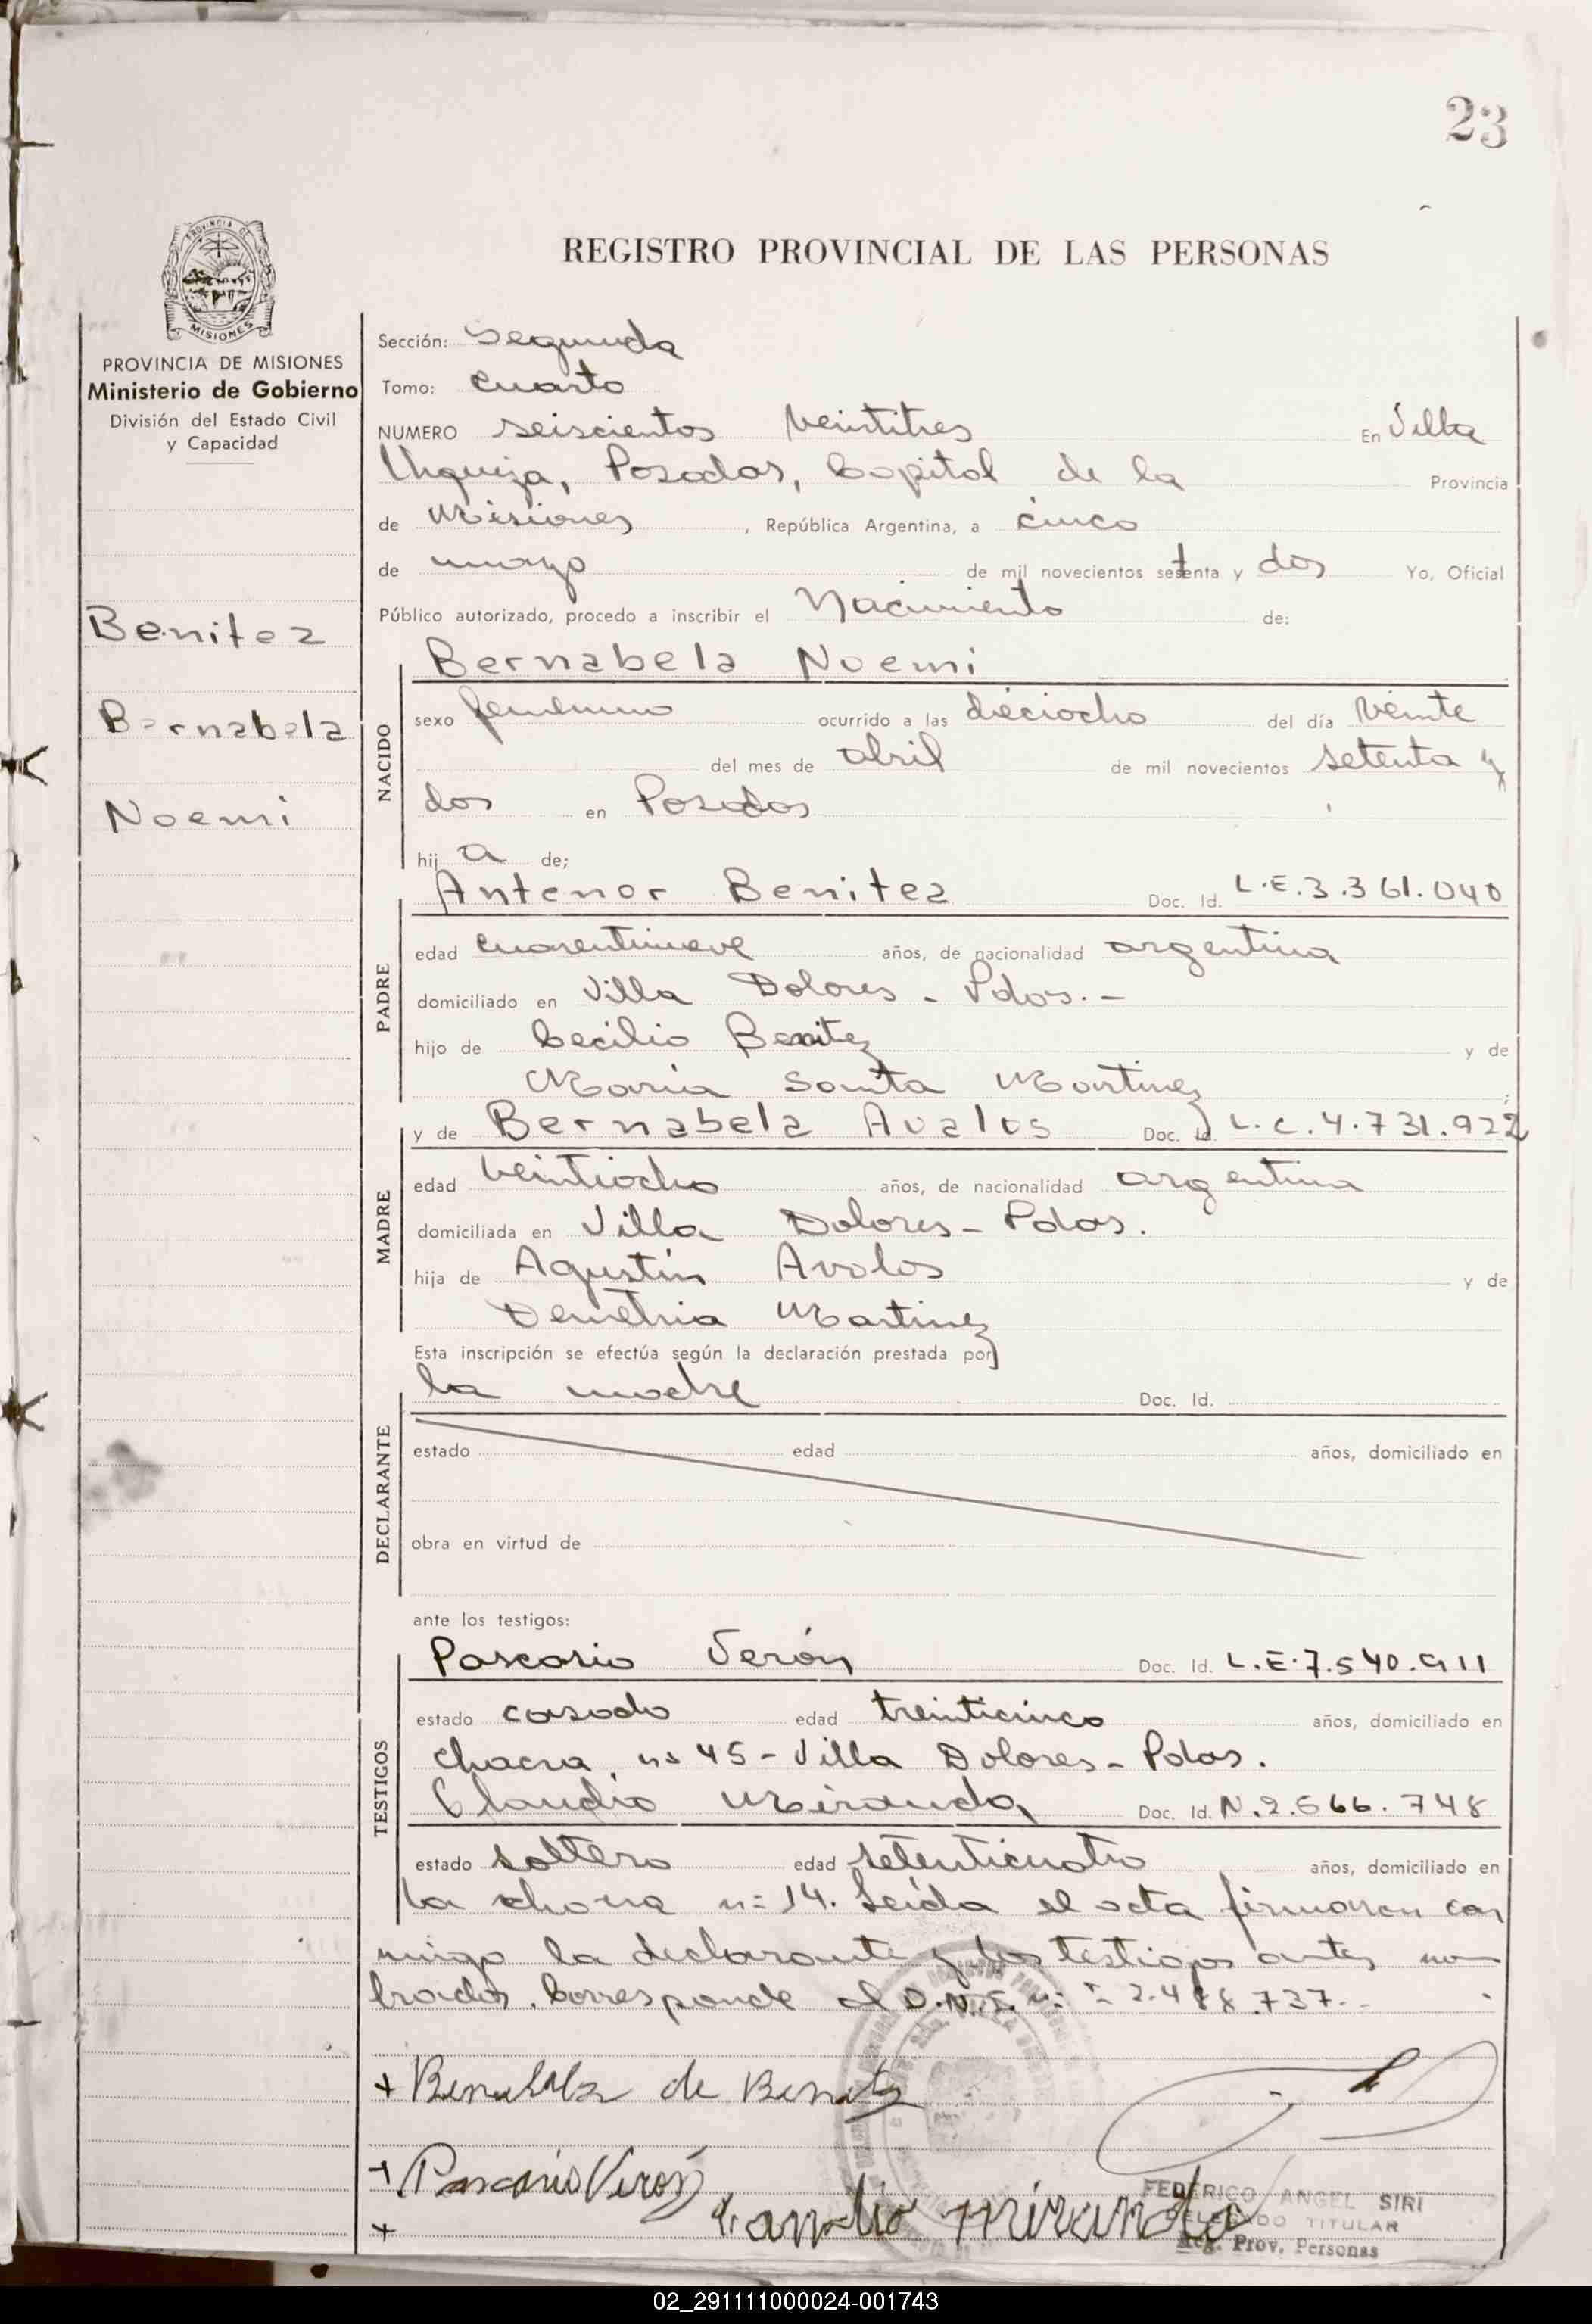 23
REGISTRO PROVINCIAL DE LAS PERSONAS
PROVINCIA DE MISIONES
Ministerio de Gobierno
División del Estado Civil
y Capacidad
Benitez
Bernabela
Noemi
Sección: Segunda
Tomo: Cuarto
NUMERO seiscientos veintitres En Villa
Urquiza, Posadas, Capital de la Provincia
de Misiones, República Argentina, a cinco
de mayo de mil novecientos setenta y dos Yo, Oficial
Público autorizado, procedo a inscribir el Nacimiento de:
Bernabela Noemi
NACIDO
sexo femenino ocurrido a las dieciocho del día veinte
del mes de abril de mil novecientos setenta y
dos en Posadas
hij a de;
Antenor Benitez Doc. Id. L.E.3.361.040
PADRE
edad cuarentinueve años, de nacionalidad argentina
domiciliado en Villa Dolores - Pdas. -
hijo de Cecilio Benitez y de
Maria Santa Martinez;
y de Bernabela Avalos Doc. Id. L.C.4.731.922
MADRE
edad veintiocho años, de nacionalidad argentina
domiciliada en Villa Dolores - Pdas.
hija de Agustín Avalos y de
Demetria Martinez
Esta inscripción se efectúa según la declaración prestada por
la madre Doc. Id.
DECLARANTE
estado edad años, domiciliado en
obra en virtud de
ante los testigos:
TESTIGOS
Pascasio Verón Doc. Id. L.E.7.540.911
estado casado edad treinticinco años, domiciliado en
chacra nº 45 - Villa Dolores - Pdas.
Claudio Miranda Doc. Id. N.2.566.748
estado soltero edad setenticuatro años, domiciliado en
la chacra nº 14. Leída el acta firmaron con
migo la declarante y los testigos antes nom
brados. Corresponde al D.N.I. 2.488.737.-
+ Bernabela de Benitez
+ Pascasio Verón
+ Miranda
FEDERICO ANGEL SIRI
DELEGADO TITULAR
Reg. Prov. Personas
02_291111000024-001743